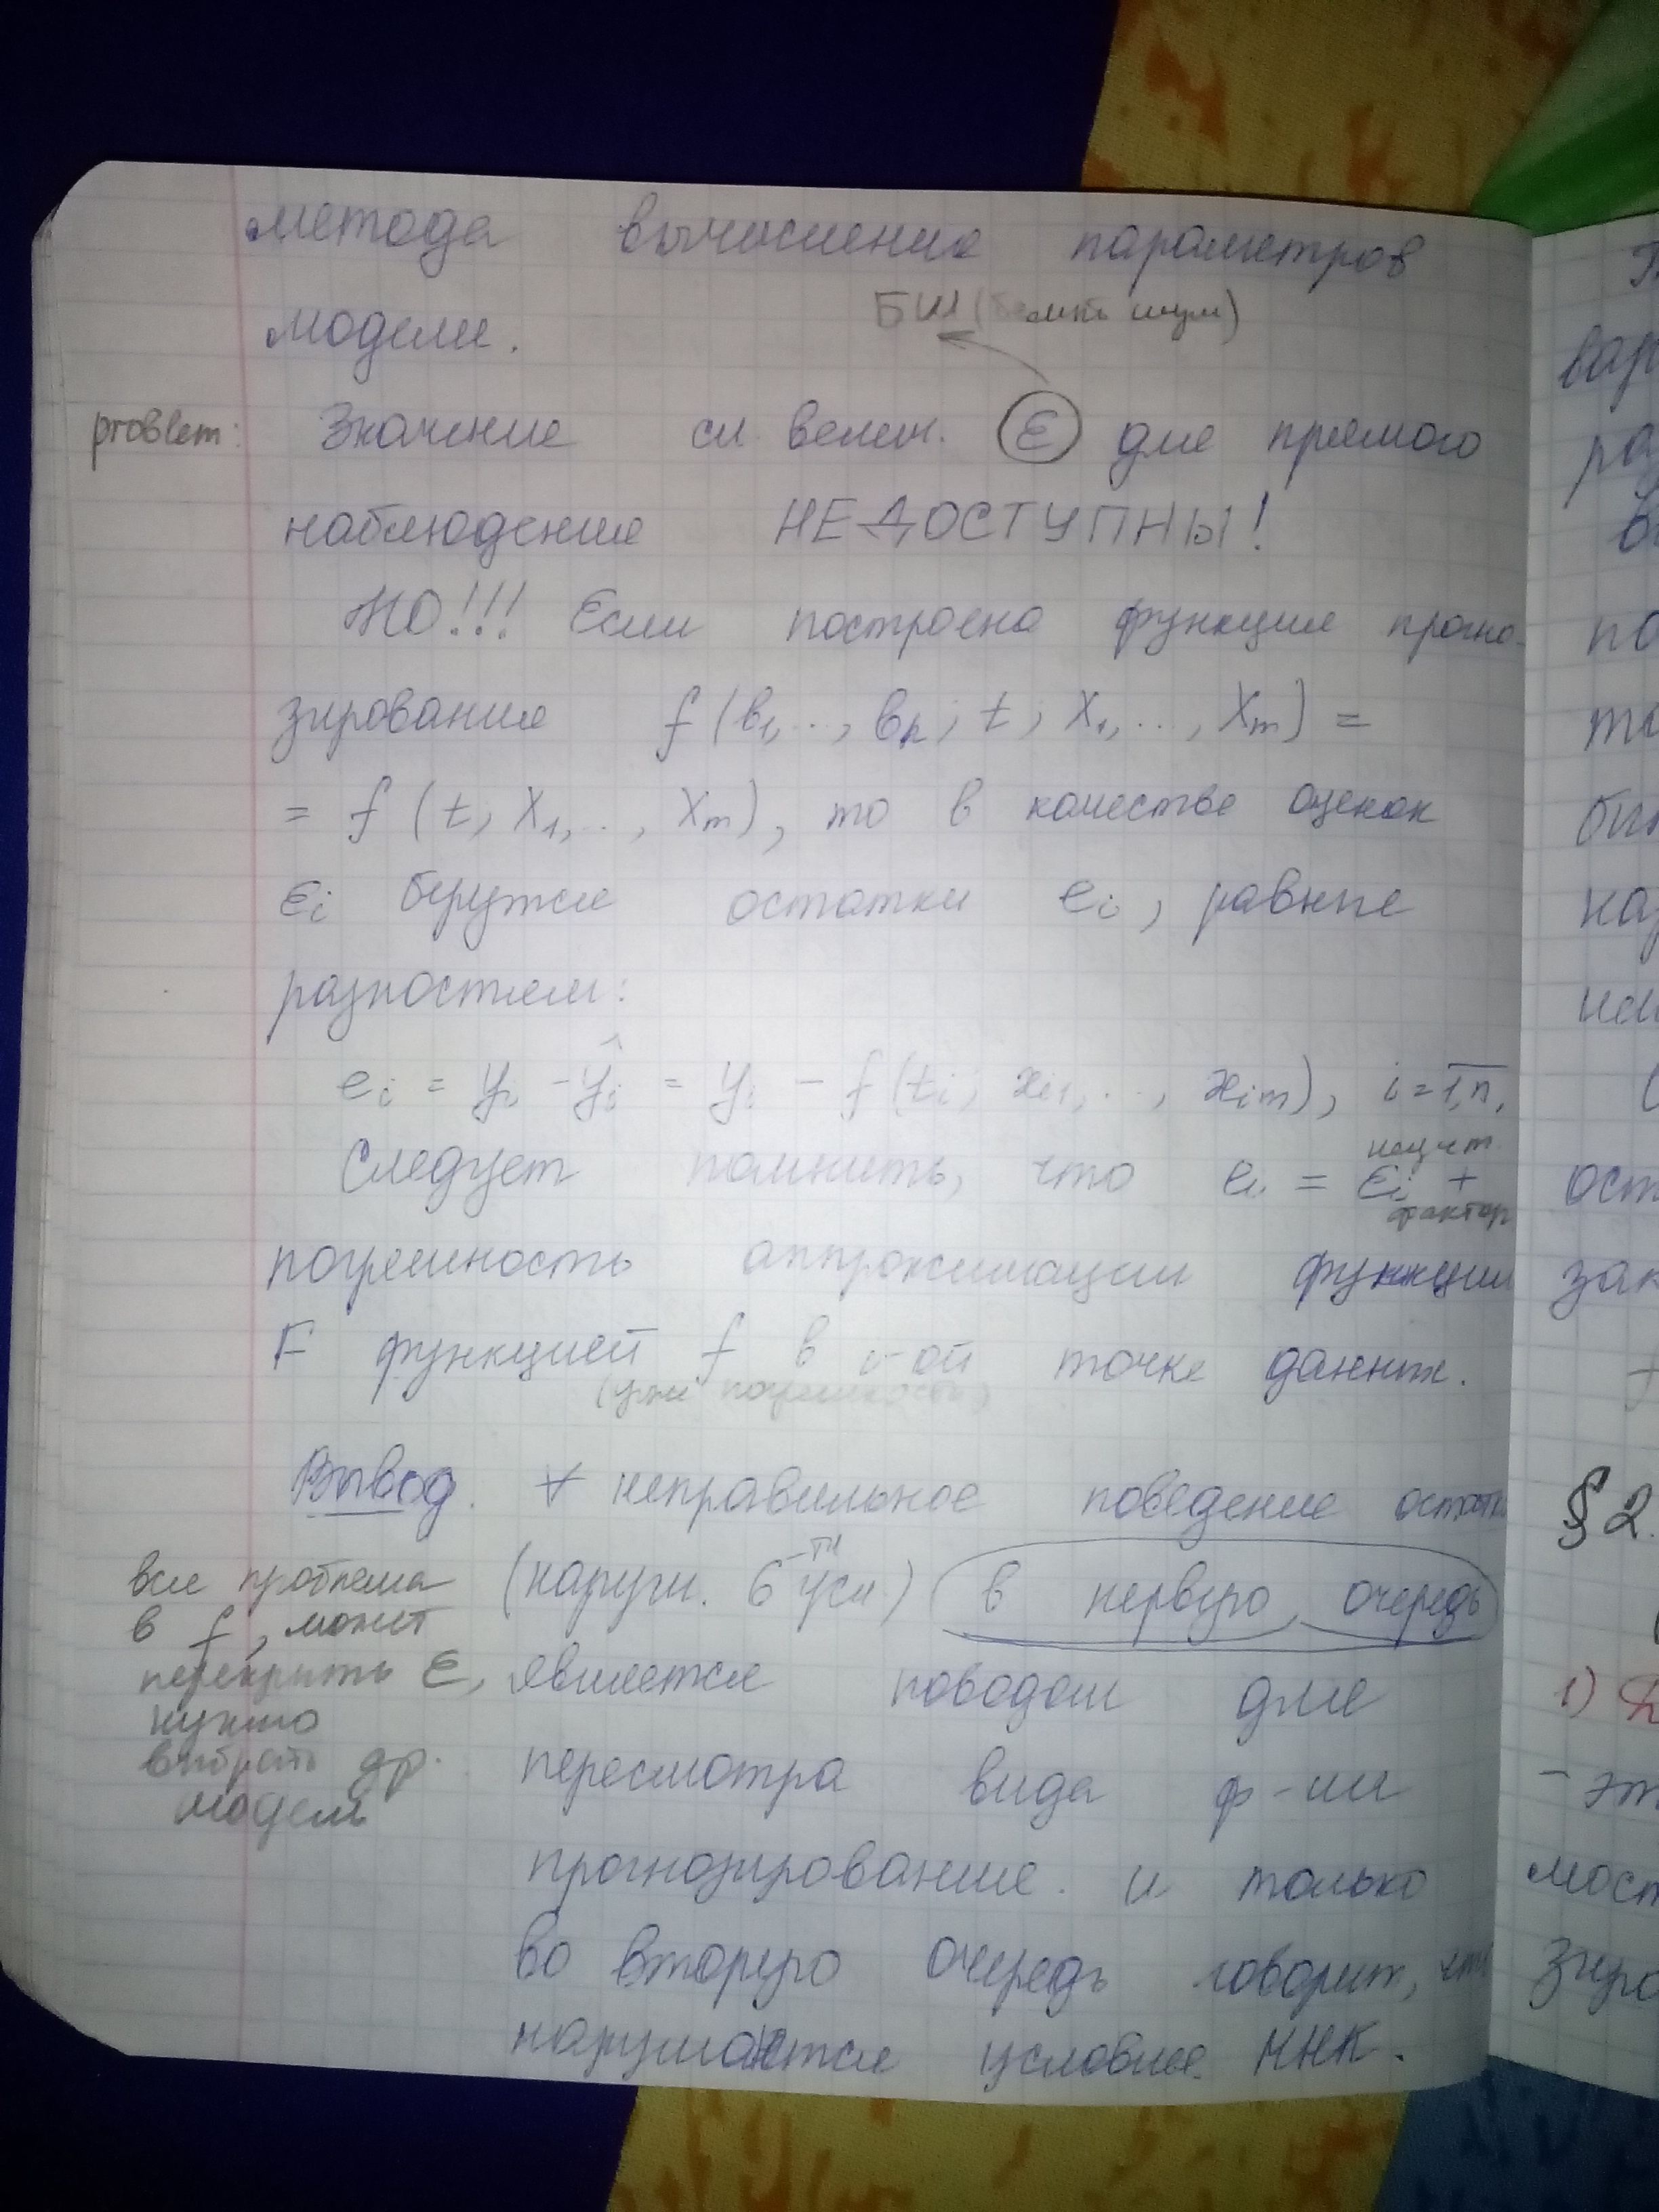 метода вычисления параметров
БШ (белый шум)
модели.
problem: Значение сл. велич. ε для прямого
наблюдения НЕДОСТУПНЫ!
НО!!! Если построена функция прогно-
зирования f(b₁,.., bₖ; t; X₁,..., Xₘ) =
= f (t, X₁,.., Xₘ), то в качестве оценок
εᵢ берутся остатки eᵢ, равные
разностям:
eᵢ = yᵢ - ŷᵢ = yᵢ - f(tᵢ, xᵢ₁,.., xᵢₘ), i = 1,n,
неучт.
Следует помнить, что eᵢ = εᵢ +
фактор
погрешность аппроксимации функции
F функцией f в i-ой точке данных.
(уже погрешность)
Вывод. ∀ неправильное поведение остатк
(наруш. 6-ти усл) в первую очередь
является поводом для
пересмотра вида ф-ии
прогнозирования и только
во вторую очередь говорит, что
нарушаются условие МНК.
все проблема
в f, может
перекрыть ε,
нужно
выбрать др.
модель